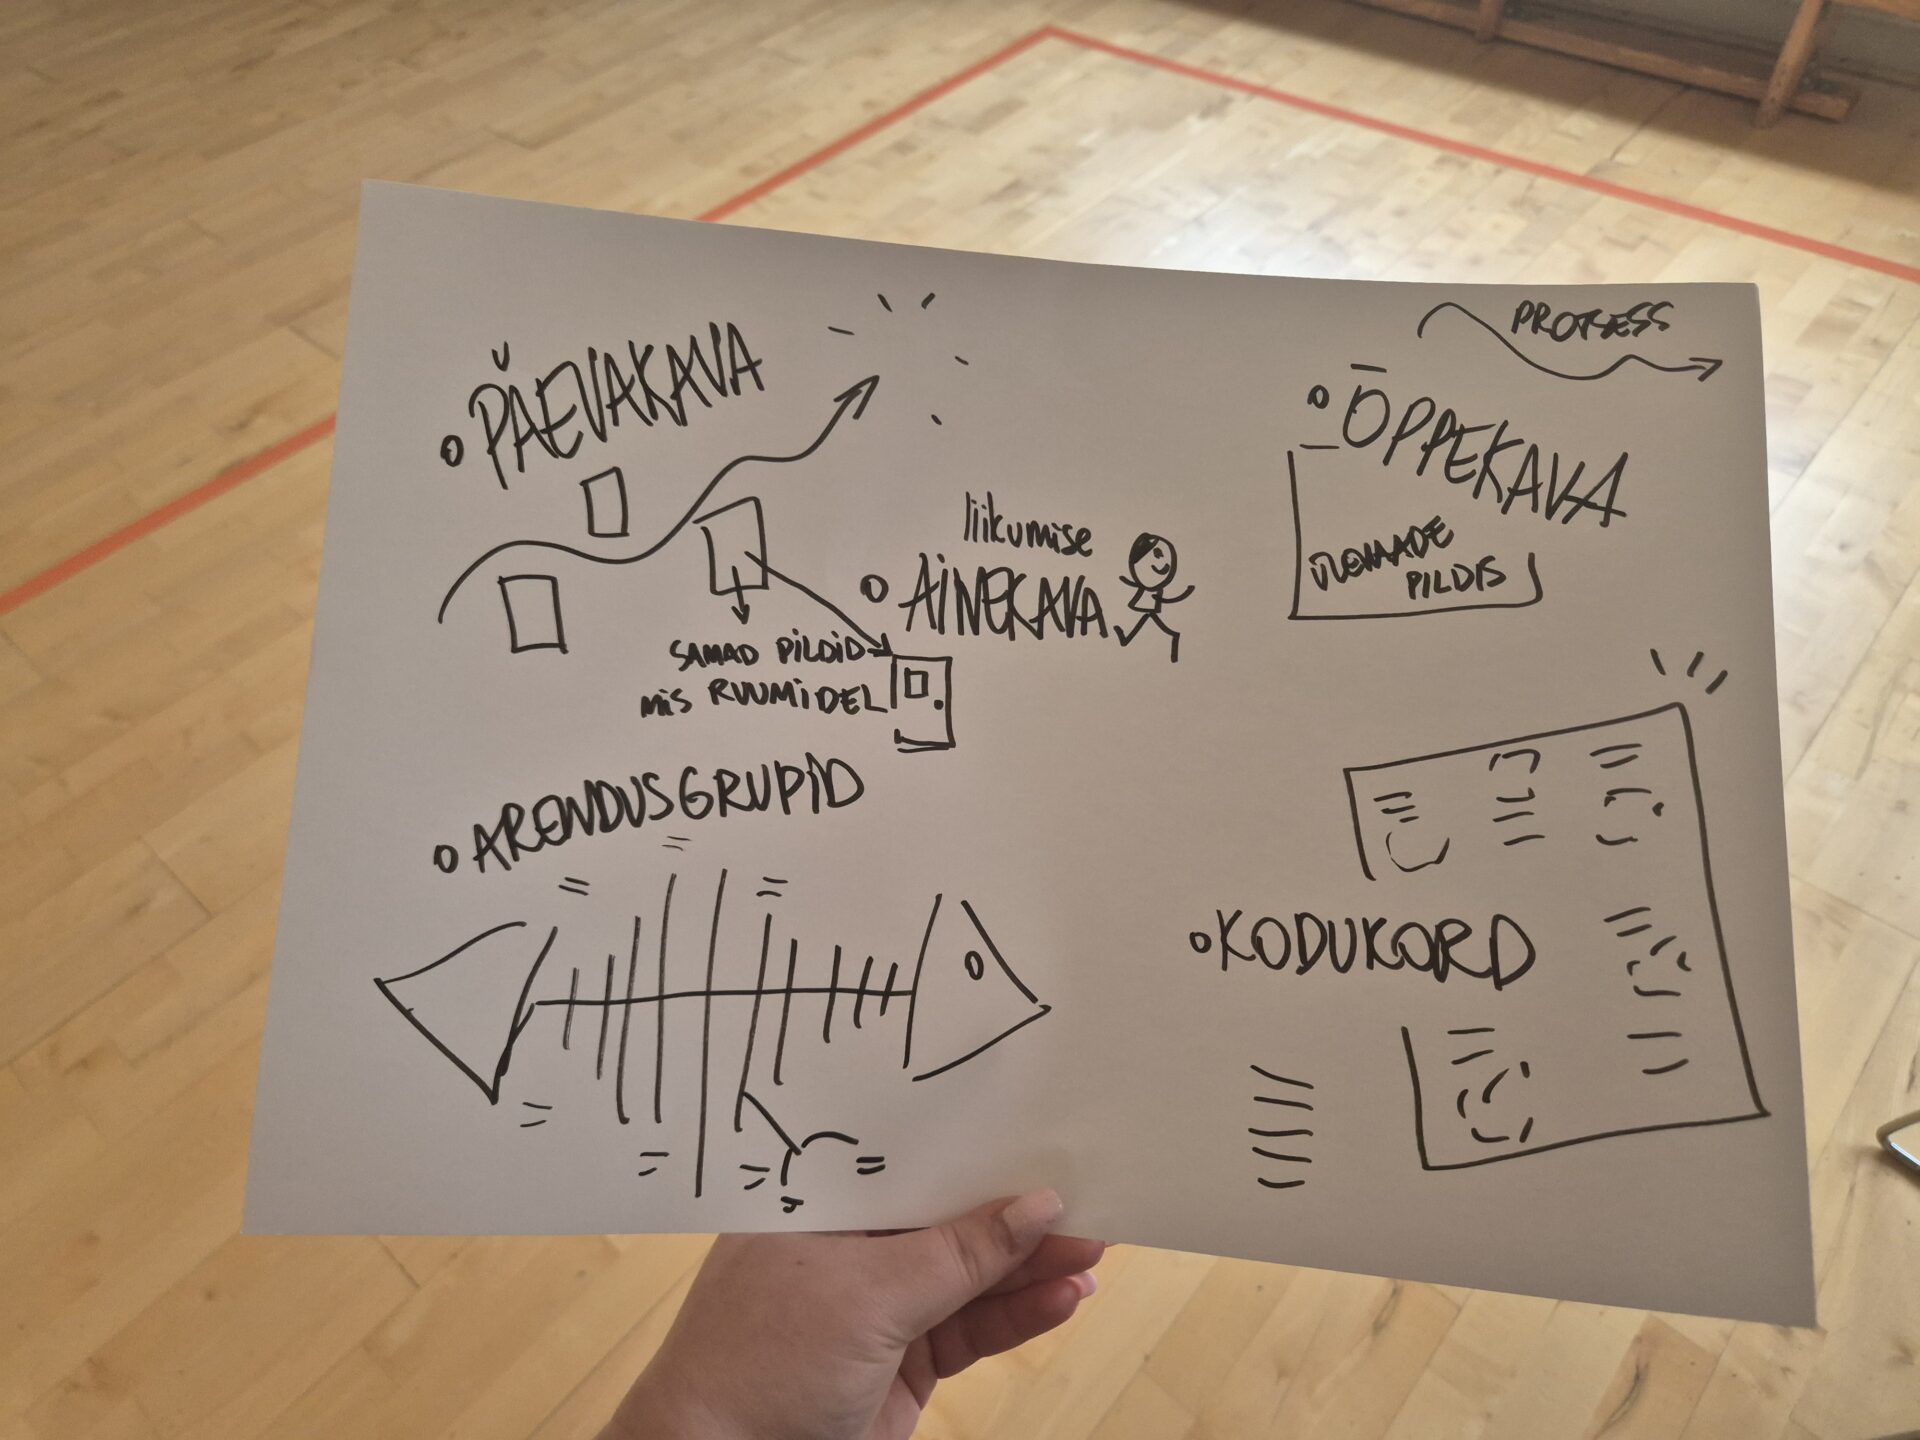 PÄEVAKAVA
SAMAD PILDID
MIS RUUMIDEL
liikumise
AINEKAVA
PROTSESS
ÕPPEKAVA
PILDIS
ARENDUSGRUPID
KODUKORD